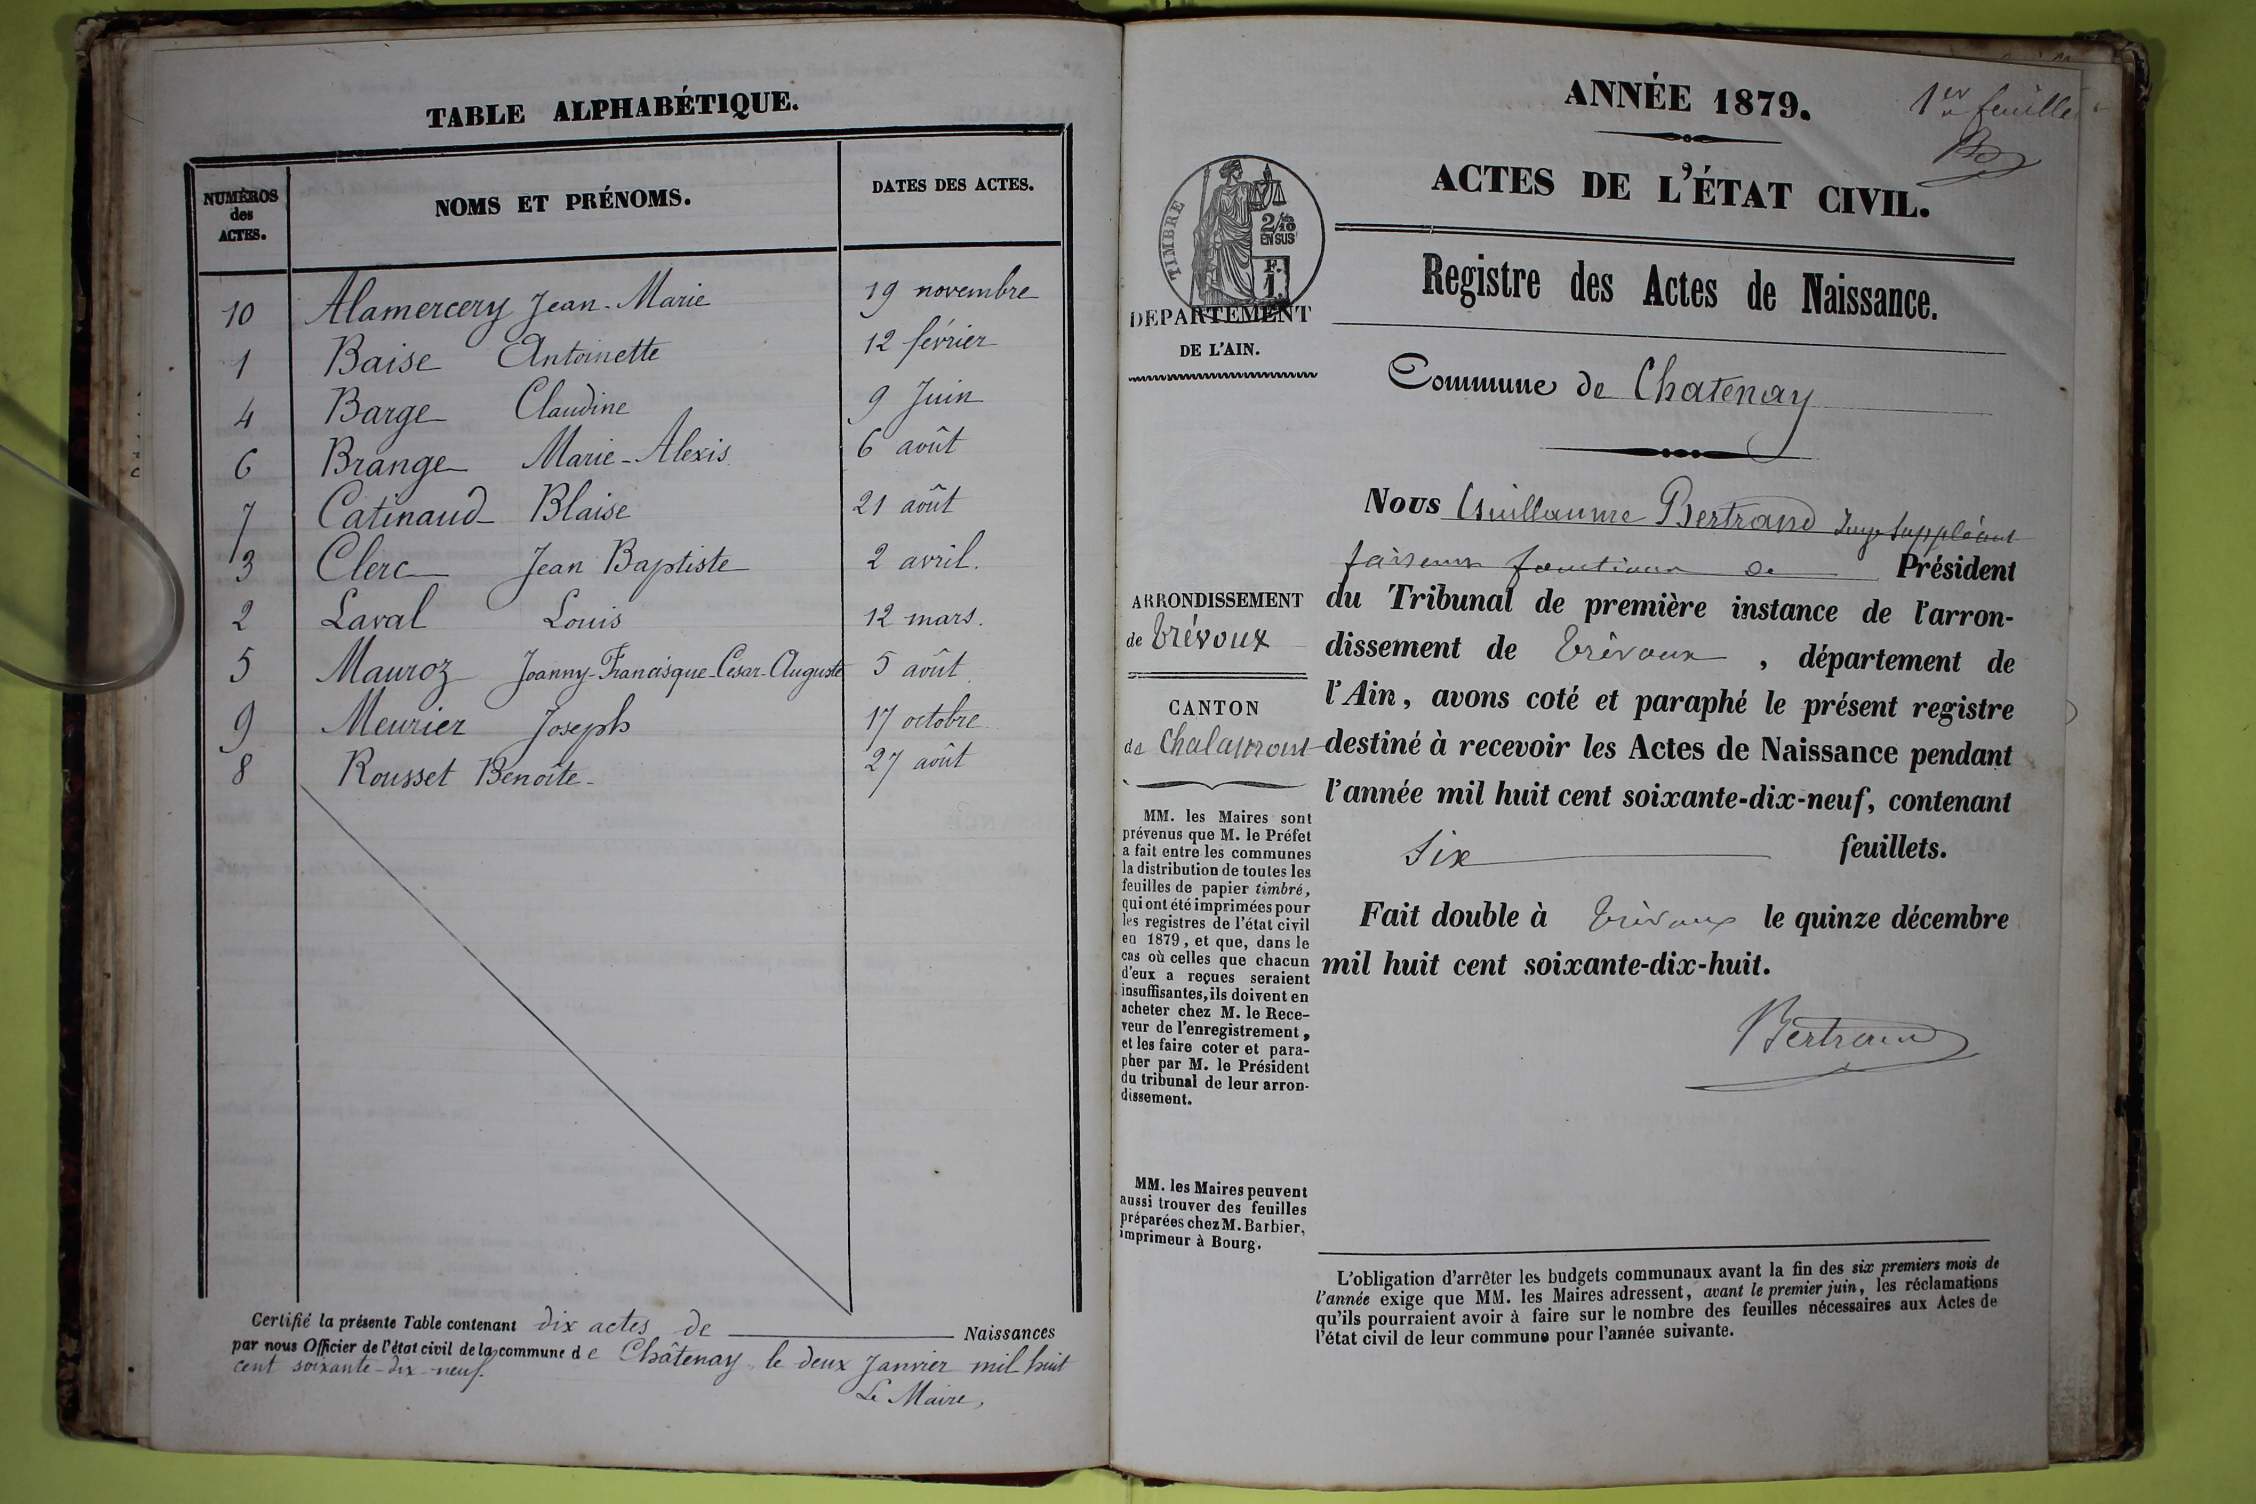 TABLE ALPHABÉTIQUE.
NUMÉROS des ACTES. NOMS ET PRÉNOMS. DATES DES ACTES.
10 Alamercery Jean-Marie 19 novembre
1 Baise Antoinette 12 février
4 Barge Claudine 9 Juin
6 Brange Marie-Alexis 6 août
7 Catinaud Blaise 21 août
3 Clerc Jean Baptiste 2 avril.
2 Laval Louis 12 mars.
5 Mauroz Joanny-Francisque-Cesar-Auguste 5 août
9 Meurier Joseph 17 octobre
8 Rousset Benoîte 27 août
Certifié la présente Table contenant dix actes de Naissances
par nous Officier de l'état civil de la commune de Châtenay le deux Janvier mil huit
cent soixante-dix-neuf.
Le Maire,
1er feuillet
ANNÉE 1879.
ACTES DE L'ÉTAT CIVIL.
TIMBRE
2/10
EN SUS
F.
1.
DEPARTEMENT
DE L'AIN.
Registre des Actes de Naissance.
Commune de Chatenay
ARRONDISSEMENT
de Trévoux
CANTON
de Chalamont
MM. les Maires sont
prévenus que M. le Préfet
a fait entre les communes
la distribution de toutes les
feuilles de papier timbré,
qui ont été imprimées pour
les registres de l'état civil
en 1879, et que, dans le
cas où celles que chacun
d'eux a reçues seraient
insuffisantes, ils doivent en
acheter chez M. le Rece-
veur de l'enregistrement,
et les faire coter et para-
pher par M. le Président
du tribunal de leur arron-
dissement.
MM. les Maires peuvent
aussi trouver des feuilles
préparées chez M. Barbier,
imprimeur à Bourg.
Nous Guillaume Bertrand Juge Suppléant
faisant fonctions de Président
du Tribunal de première instance de l'arron-
dissement de Trévoux, département de
l'Ain, avons coté et paraphé le présent registre
destiné à recevoir les Actes de Naissance pendant
l'année mil huit cent soixante-dix-neuf, contenant
six feuillets.
Fait double à Trévoux le quinze décembre
mil huit cent soixante-dix-huit.
Bertrand
L'obligation d'arrêter les budgets communaux avant la fin des six premiers mois de
l'année exige que MM. les Maires adressent, avant le premier juin, les réclamations
qu'ils pourraient avoir à faire sur le nombre des feuilles nécessaires aux Actes de
l'état civil de leur commune pour l'année suivante.